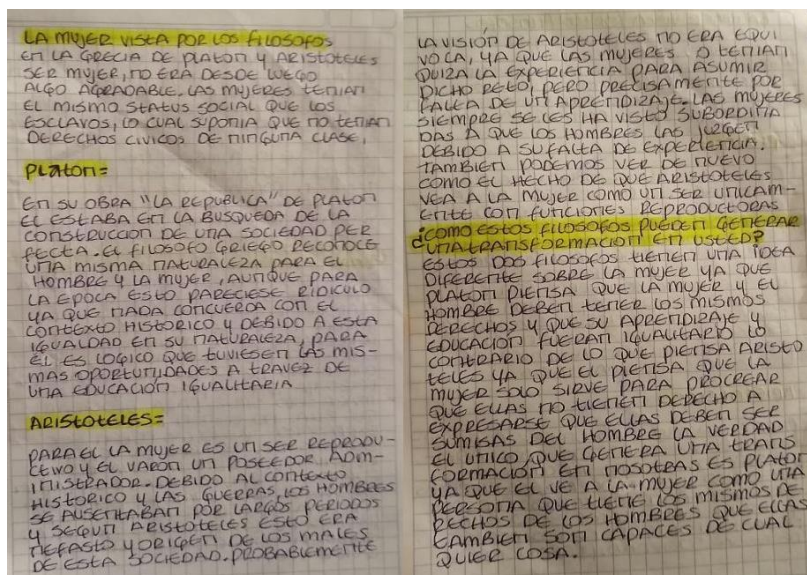 LA MUJER VISTA POR LOS FILOSOFOS
EN LA GRECIA DE PLATON Y ARISTOTELES
SER MUJER, NO ERA DESDE LUEGO
ALGO AGRADABLE. LAS MUJERES TENIAN
EL MISMO STATUS SOCIAL QUE LOS
ESCLAVOS, LO CUAL SUPONIA QUE NO TENIAN
DERECHOS CIVICOS DE NINGUNA CLASE,
PLATON=
EN SU OBRA "LA REPUBLICA" DE PLATON
EL ESTABA EN LA BUSQUEDA DE LA
CONSTRUCCION DE UNA SOCIEDAD PER
FECTA. EL FILOSOFO GRIEGO RECONOCE
UNA MISMA NATURALEZA PARA EL
HOMBRE Y LA MUJER, AUNQUE PARA
LA EPOCA ESTO PARECIESE RIDICULO
YA QUE NADA CONCUERDA CON EL
CONTEXTO HISTORICO Y DEBIDO A ESTA
IGUALDAD EN SU NATURALEZA, PARA
EL ES LOGICO QUE TUVIESEN LAS MIS-
MAS OPORTUNIDADES A TRAVEZ DE
UNA EDUCACION IGUALITARIA
ARISTOTELES=
PARA EL LA MUJER ES UN SER REPRODU-
CTIVO Y EL VARON UN POSEEDOR ADM-
INISTRADOR. DEBIDO AL CONTEXTO
HISTORICO Y LAS GUERRAS, LOS HOMBRES
SE AUSENTABAN POR LARGOS PERIODOS
Y SEGUN ARISTOTELES ESTO ERA
NEFASTO Y ORIGEN DE LOS MALES
DE ESTA SOCIEDAD. PROBABLEMENTE
LA VISIÓN DE ARISTOTELES NO ERA EQUI
VOCA, YA QUE LAS MUJERES O TENIAN
QUIZA LA EXPERIENCIA PARA ASUMIR
DICHO RETO, PERO PRECISAMENTE POR
FALTA DE UN APRENDIZAJE. LAS MUJERES
SIEMPRE SE LES HA VISTO SUBORDINA
DAS A QUE LOS HOMBRES LAS JUZGEN
DEBIDO A SU FALTA DE EXPERIENCIA.
TAMBIEN PODEMOS VER DE NUEVO
COMO EL HECHO DE QUE ARISTOTELES
VEA A LA MUJER COMO UN SER UNICAM-
ENTE CON FUNCIONES REPRODUCTORAS
¿COMO ESTOS FILOSOFOS PUEDEN GENERAR
UNA TRANSFORMACION EN USTED?
ESTOS DOS FILOSOFOS TIENEN UNA IDEA
DIFERENTE SOBRE LA MUJER YA QUE
PLATON PIENSA QUE LA MUJER Y EL
HOMBRE DEBEN TENER LOS MISMOS
DERECHOS Y QUE SU APRENDIZAJE Y
EDUCACION FUERAN IGUALITARIO LO
CONTRARIO DE LO QUE PIENSA ARISTO
TELES YA QUE EL PIENSA QUE LA
MUJER SOLO SIRVE PARA PROCREAR
QUE ELLAS NO TIENEN DERECHO A
EXPRESARSE QUE ELLAS DEBEN SER
SUMISAS DEL HOMBRE LA VERDAD
EL UNICO QUE GENERA UNA TRANS
FORMACION EN NOSOTRAS ES PLATON
YA QUE EL VE A LA MUJER COMO UNA
PERSONA QUE TIENE LOS MISMOS DE
RECHOS DE LOS HOMBRES QUE ELLAS
TAMBIEN SON CAPACES DE CUAL
QUIER COSA.